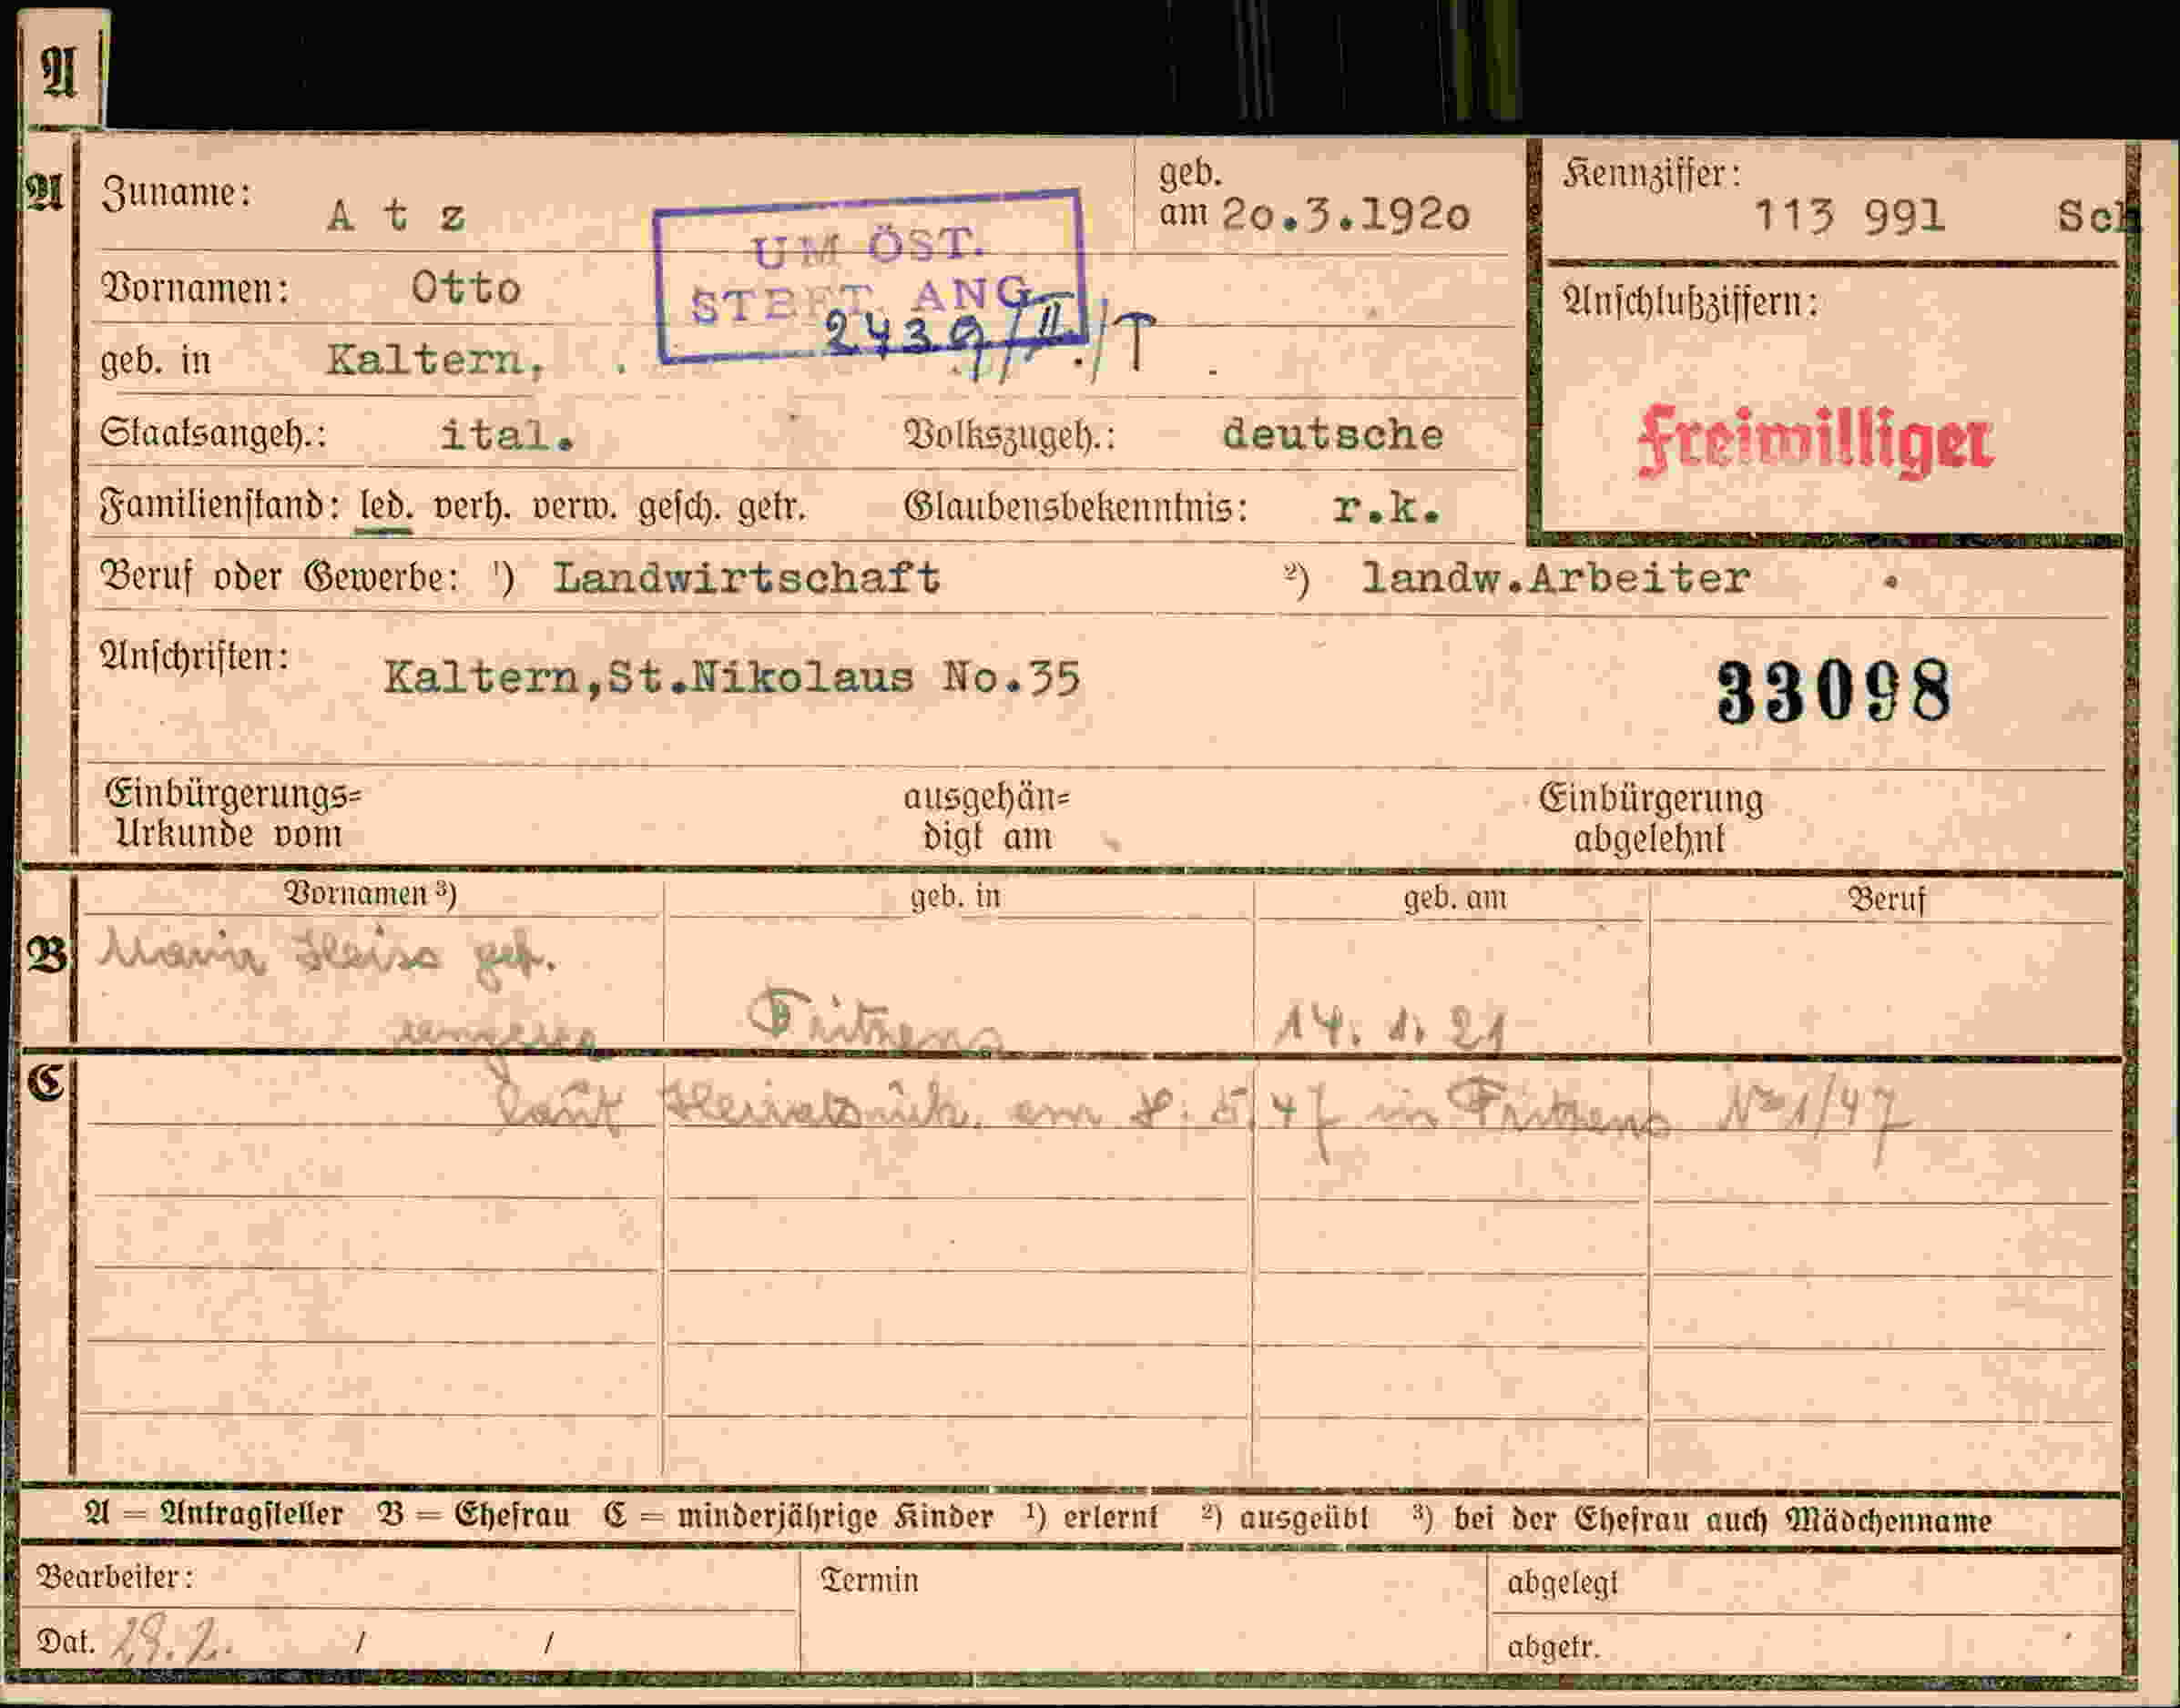 A
A Zuname: A t z geb. am 20.3.1920 Kennziffer: 113 991 Sch
UM ÖST.
Vornamen: Otto STBFT. ANG Anschlußziffern:
2439/II./T
geb. in Kaltern,
Staatsangeh.: ital. Volkszugeh.: deutsche Freiwilliger
Familienstand: led. verh. verw. gesch. getr. Glaubensbekenntnis: r.k.
Beruf oder Gewerbe: ¹) Landwirtschaft ²) landw.Arbeiter
Anschriften: Kaltern,St.Nikolaus No.35 33098
Einbürgerungs= ausgehän= Einbürgerung
Urkunde vom digt am abgelehnt
Vornamen ³) geb. in geb. am Beruf
B Maria Heiss geb.
Fritzens 14. 1. 21
C laut Heiratsurk. am 8. 5. 47 in Fritzens No 1/47
A = Antragsteller B = Ehefrau C = minderjährige Kinder ¹) erlernt ²) ausgeübt ³) bei der Ehefrau auch Mädchenname
Bearbeiter: Termin abgelegt
Dat. 28.2. / / abgetr.